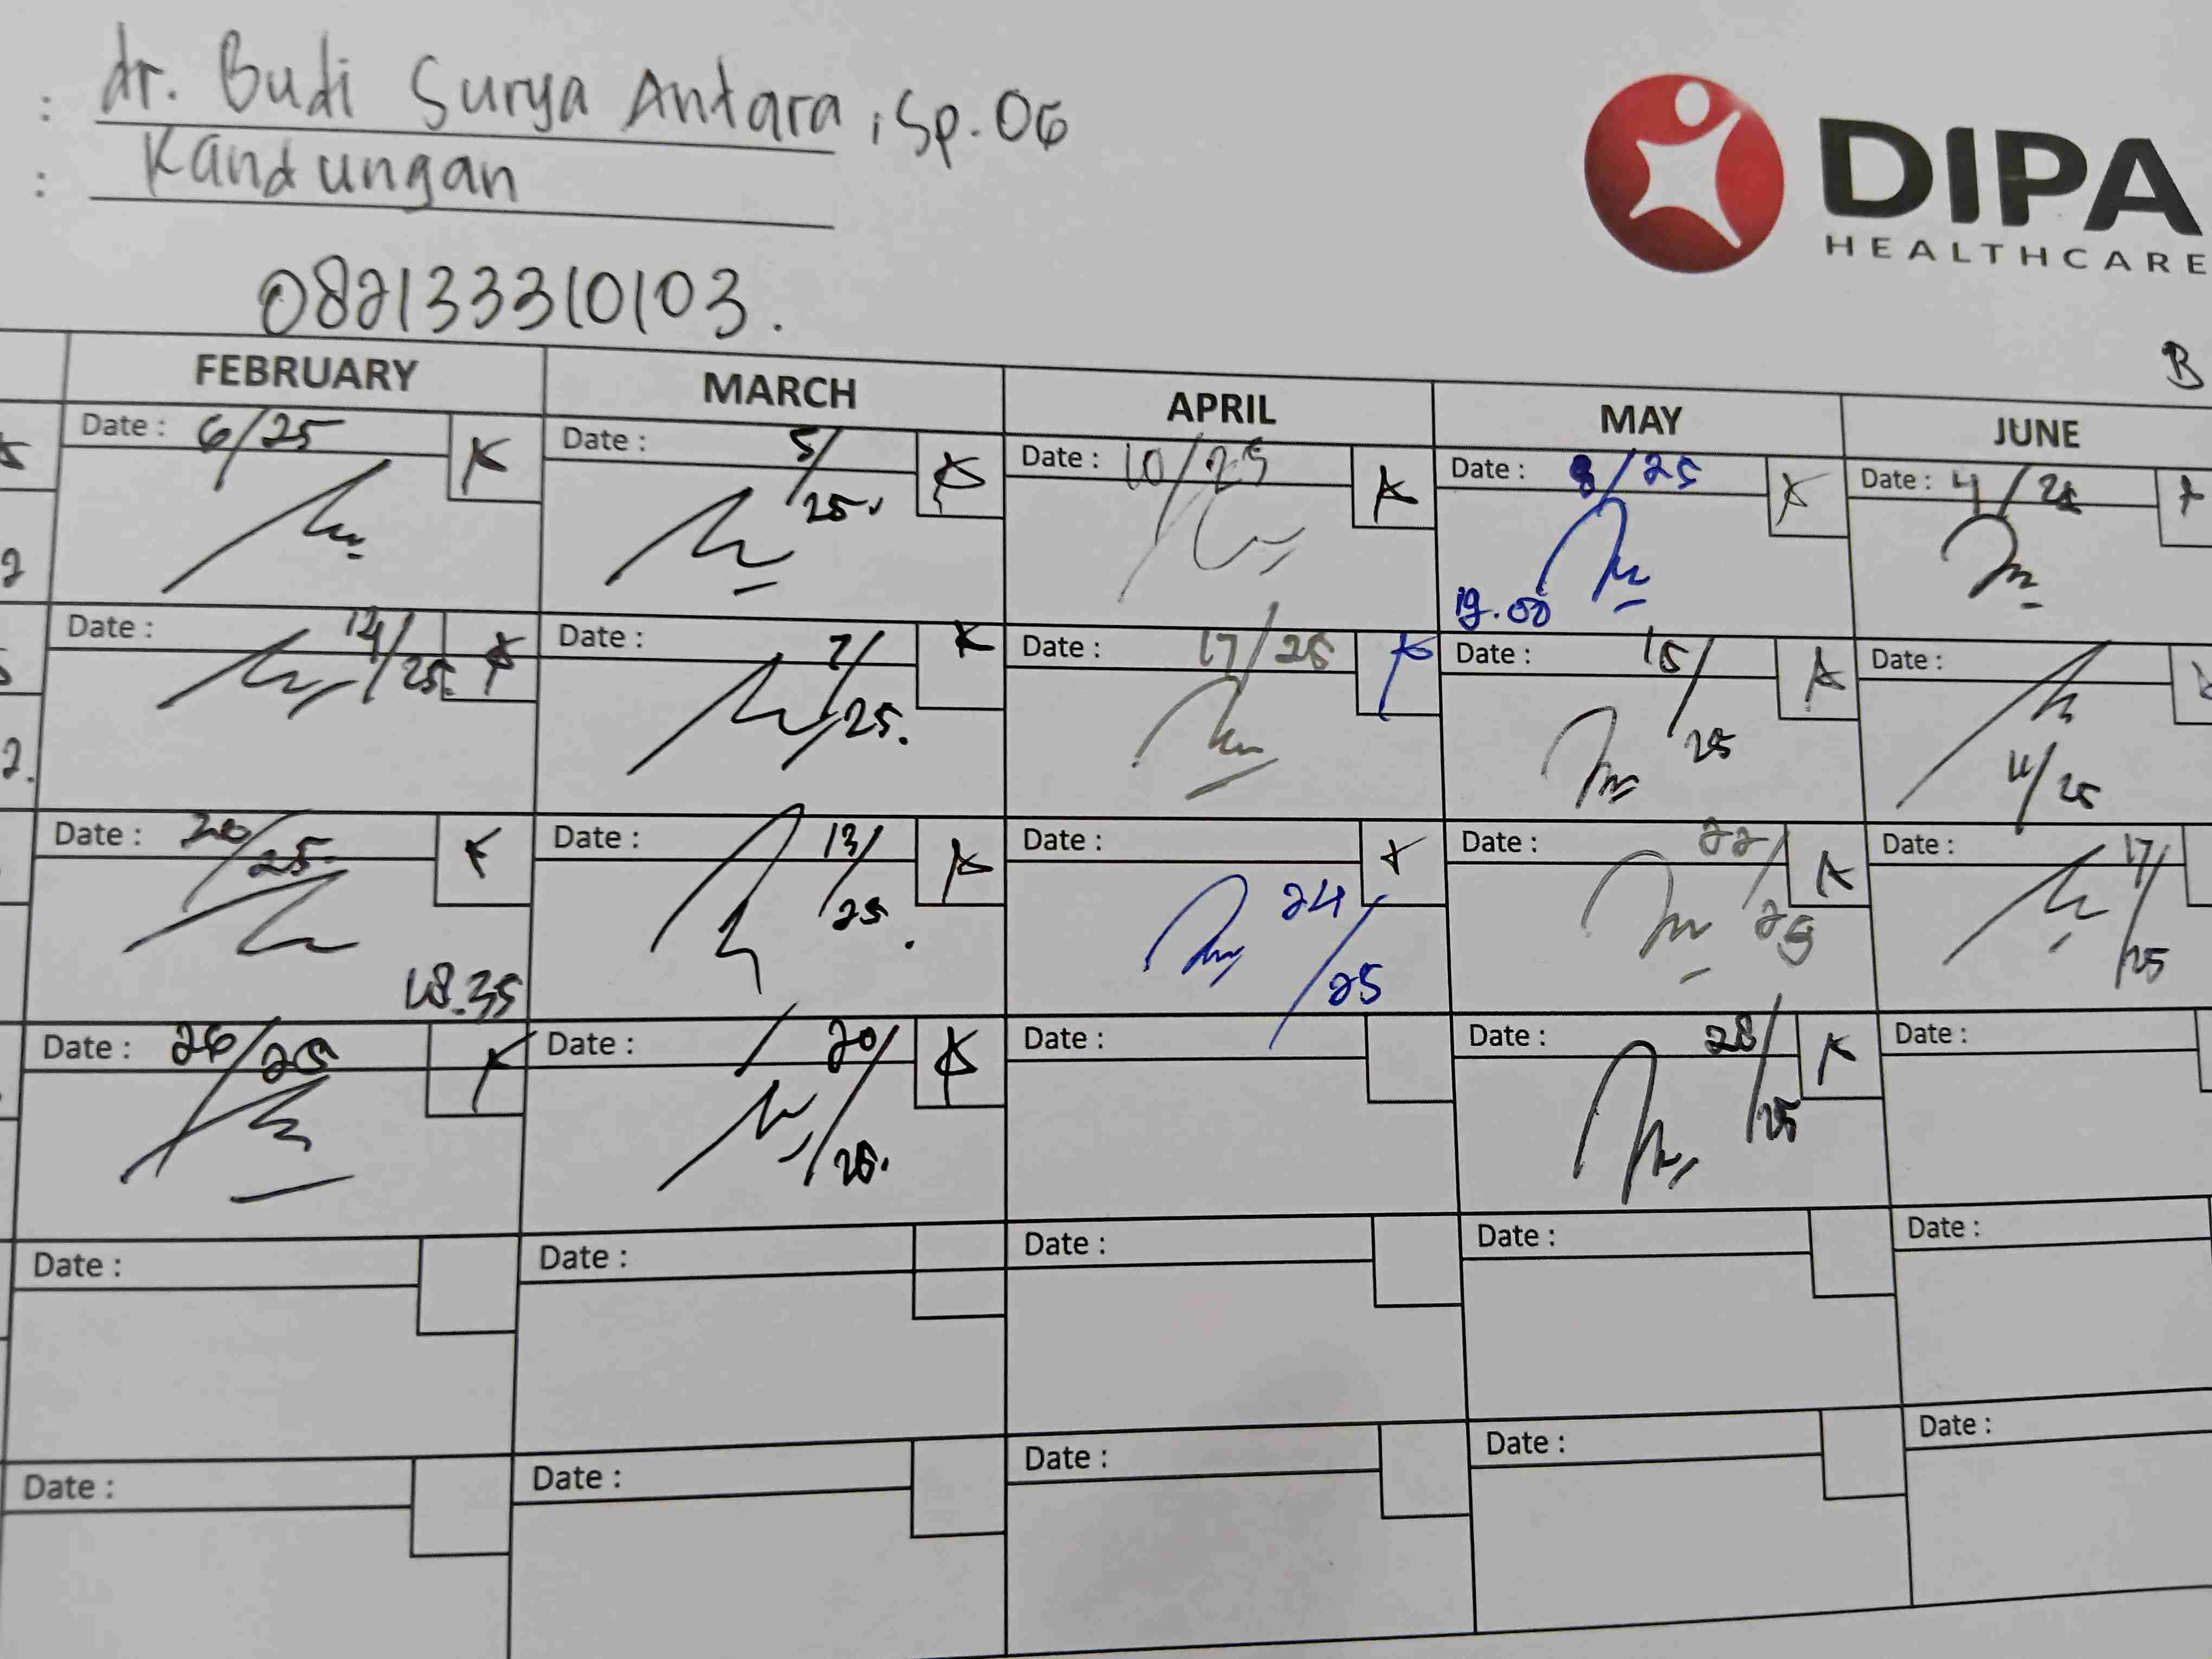 : dr. Budi Surya Antara, Sp.OG
: Kandungan
DIPA
HEALTHCARE
082133310103.
B
FEBRUARY MARCH APRIL MAY JUNE
Date : 6/25 K Date : 5/25. Date : 10/25 A Date : 8/25 Date : 4/25
19.00
Date : 14/25. Date : 7/25. K Date : 17/25 Date : 15/25 A Date : 11/25
2.
Date : 20/25. Date : 13/25. Date : 24/25 Date : 22/25 A Date : 17/25
18.35
Date : 26/25 K Date : 20/25. Date : Date : 28/25 K Date :
Date : Date : Date : Date : Date :
Date : Date : Date : Date : Date :